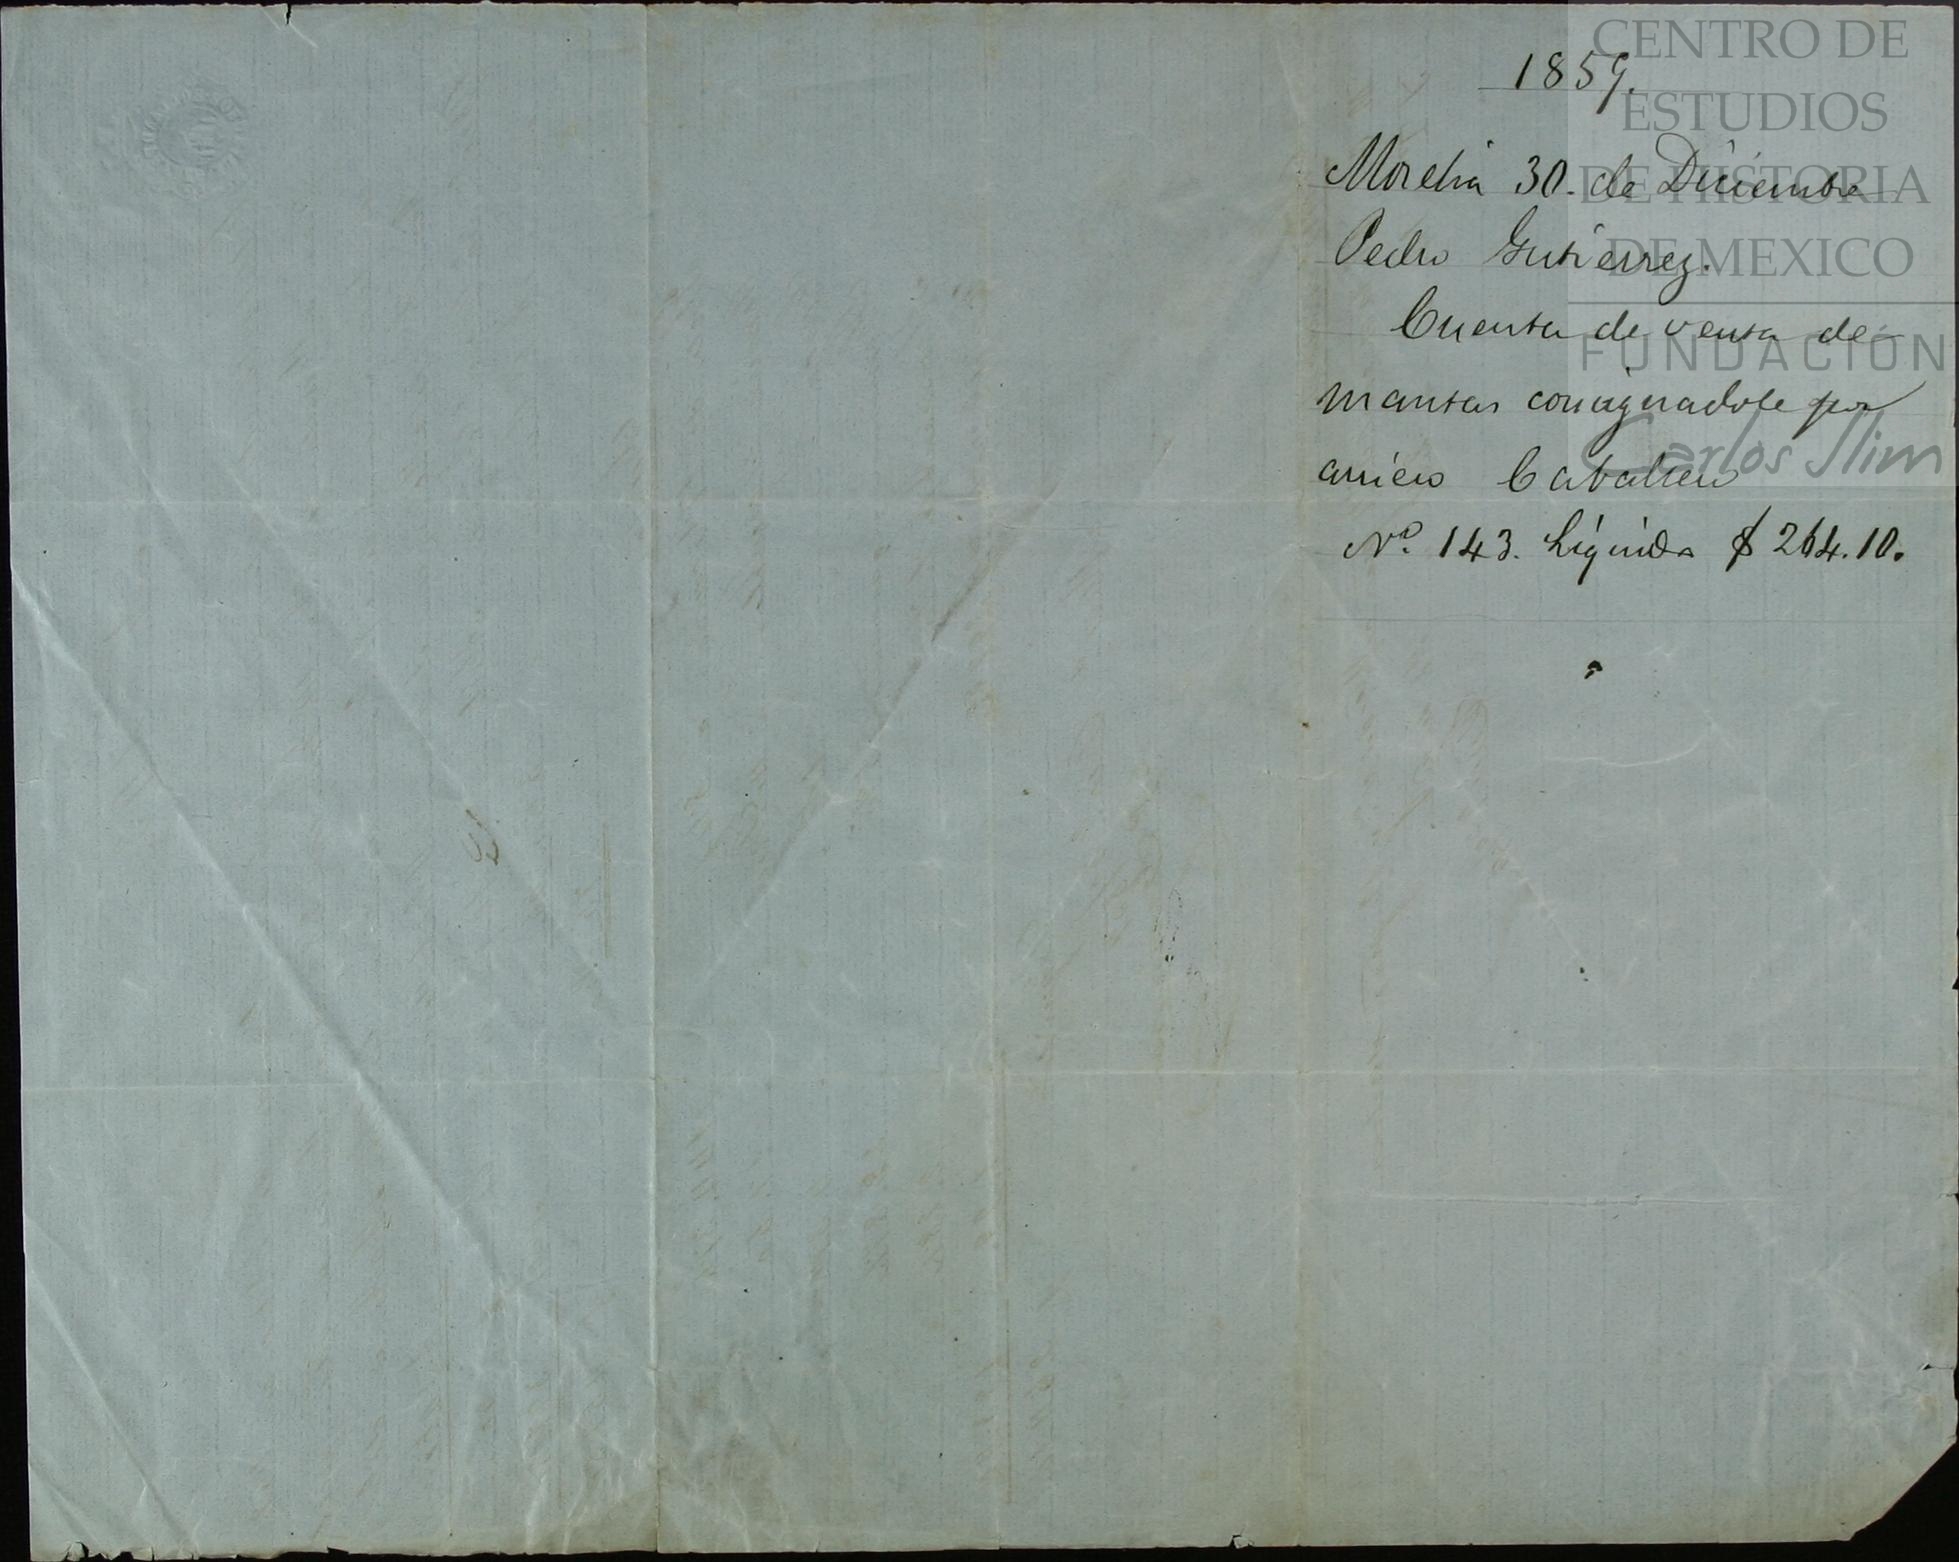 1859.
Morelia 30. de Diciembre
Pedro Gutierrez.
Cuenta de venta de
mantas consignadole por
arriero Caballero
Nº. 143. Líquida $ 264.10.
CENTRO DE
ESTUDIOS
DE HISTORIA
DE MEXICO
FUNDACIÓN
Carlos Slim